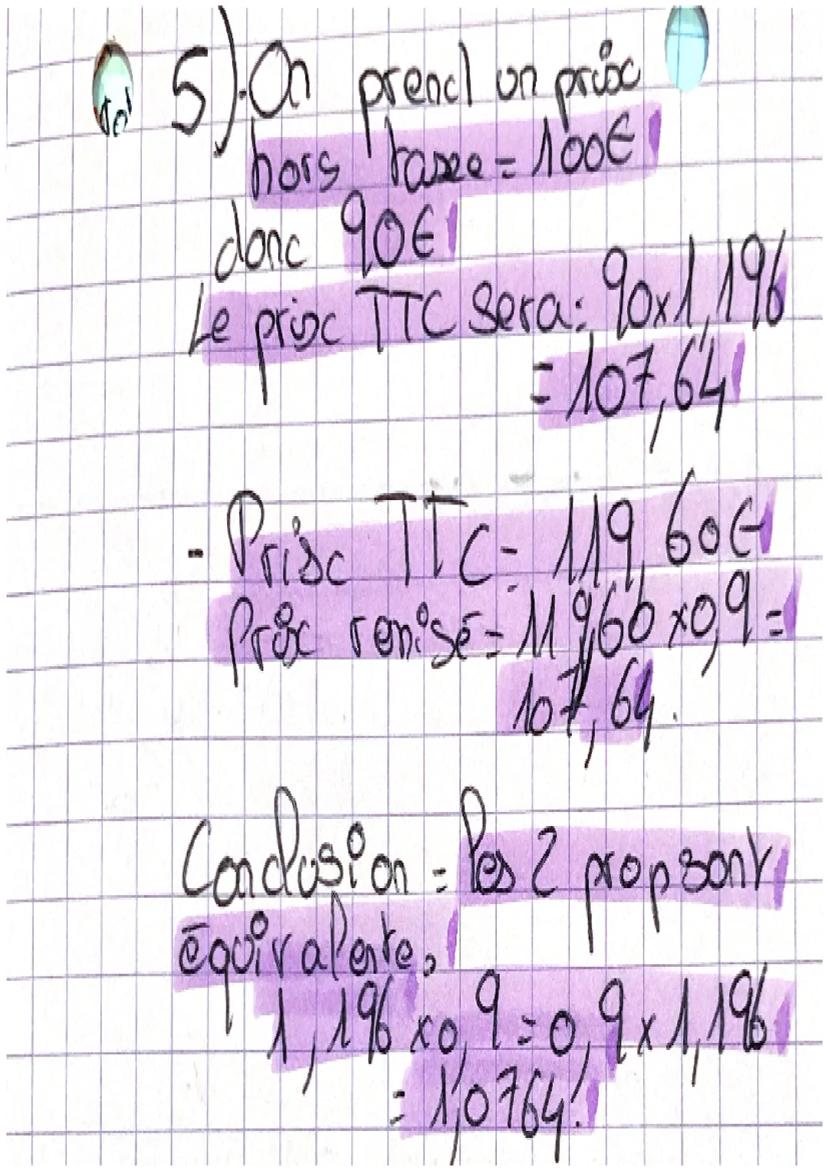 5). On prend un prix
hors taxe = 100€
donc 90€
Le prix TTC sera: 90x1,196
= 107,64
- Prix TTC = 119,60€
Prix remisé = 119,60 x0,9 =
107,64.
Conclusion = les 2 prop sont
équivalente,
1,196 x0,9 = 0,9 x 1,196
= 1,0764.